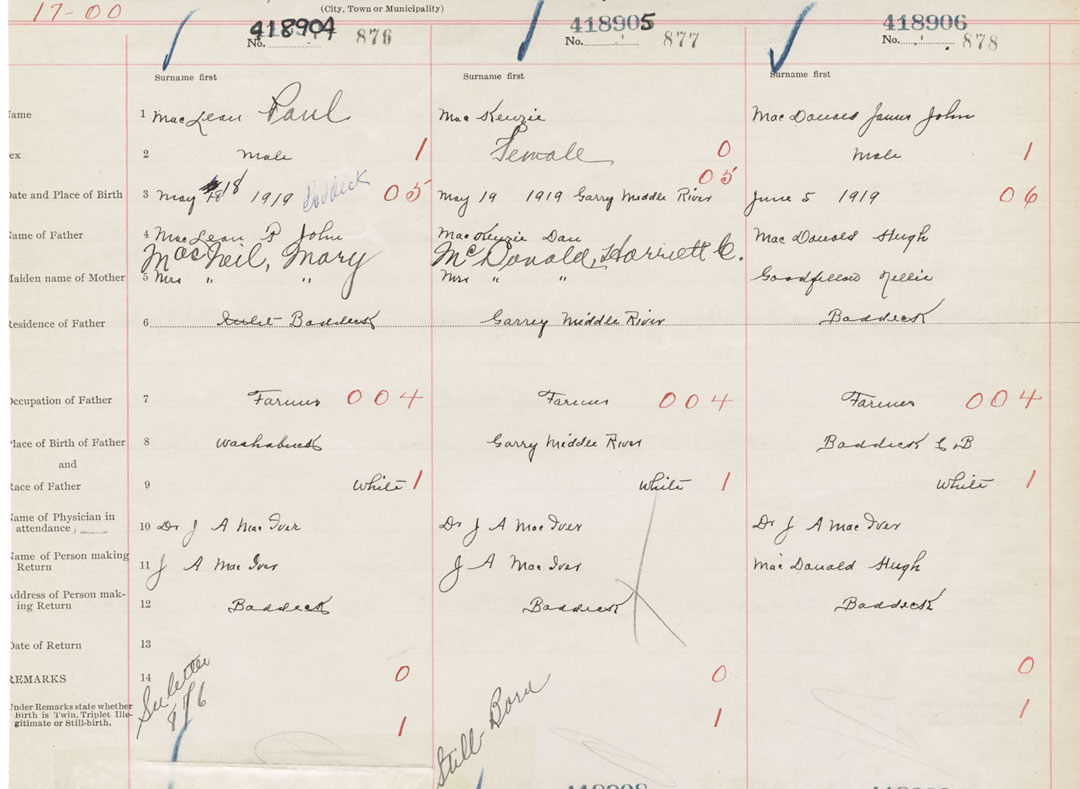 17-00
(City, Town or Municipality)
418904
No. 876
418905
No. 877
418906
No. 878
Surname first
Surname first
Surname first
ame 1 MacLean Paul
MacKenzie
MacDonald James John
ex 2 Male 1
Female 0
Male 1
Date and Place of Birth 3 May 18 1919 Baddeck 05
May 19 1919 Garry Middle River 05
June 5 1919 06
Name of Father 4 MacLean P John
MacKenzie Dan
MacDonald Hugh
MacNeil, Mary
McDonald, Harriett C.
Maiden name of Mother 5 Mrs " "
Mrs " "
Goodfellow Nellie
Residence of Father 6 Inlet Baddeck
Garrey Middle River
Baddeck
Occupation of Father 7 Farmer 004
Farmer 004
Farmer 004
Place of Birth of Father 8 Washabuck
Garry Middle River
Baddeck C.B
and
Race of Father 9 White 1
White 1
White 1
Name of Physician in
attendance 10 Dr J A MacIver
Dr J A MacIver
Dr J A MacIver
Name of Person making
Return 11 J A MacIver
J A MacIver
MacDonald Hugh
Address of Person mak-
ing Return 12 Baddeck
Baddeck
Baddeck
Date of Return 13
REMARKS 14 0
0
0
Under Remarks state whether
Birth is Twin, Triplet Ille-
gitimate or Still-birth.
See letter
876
1
Still Born
1
1